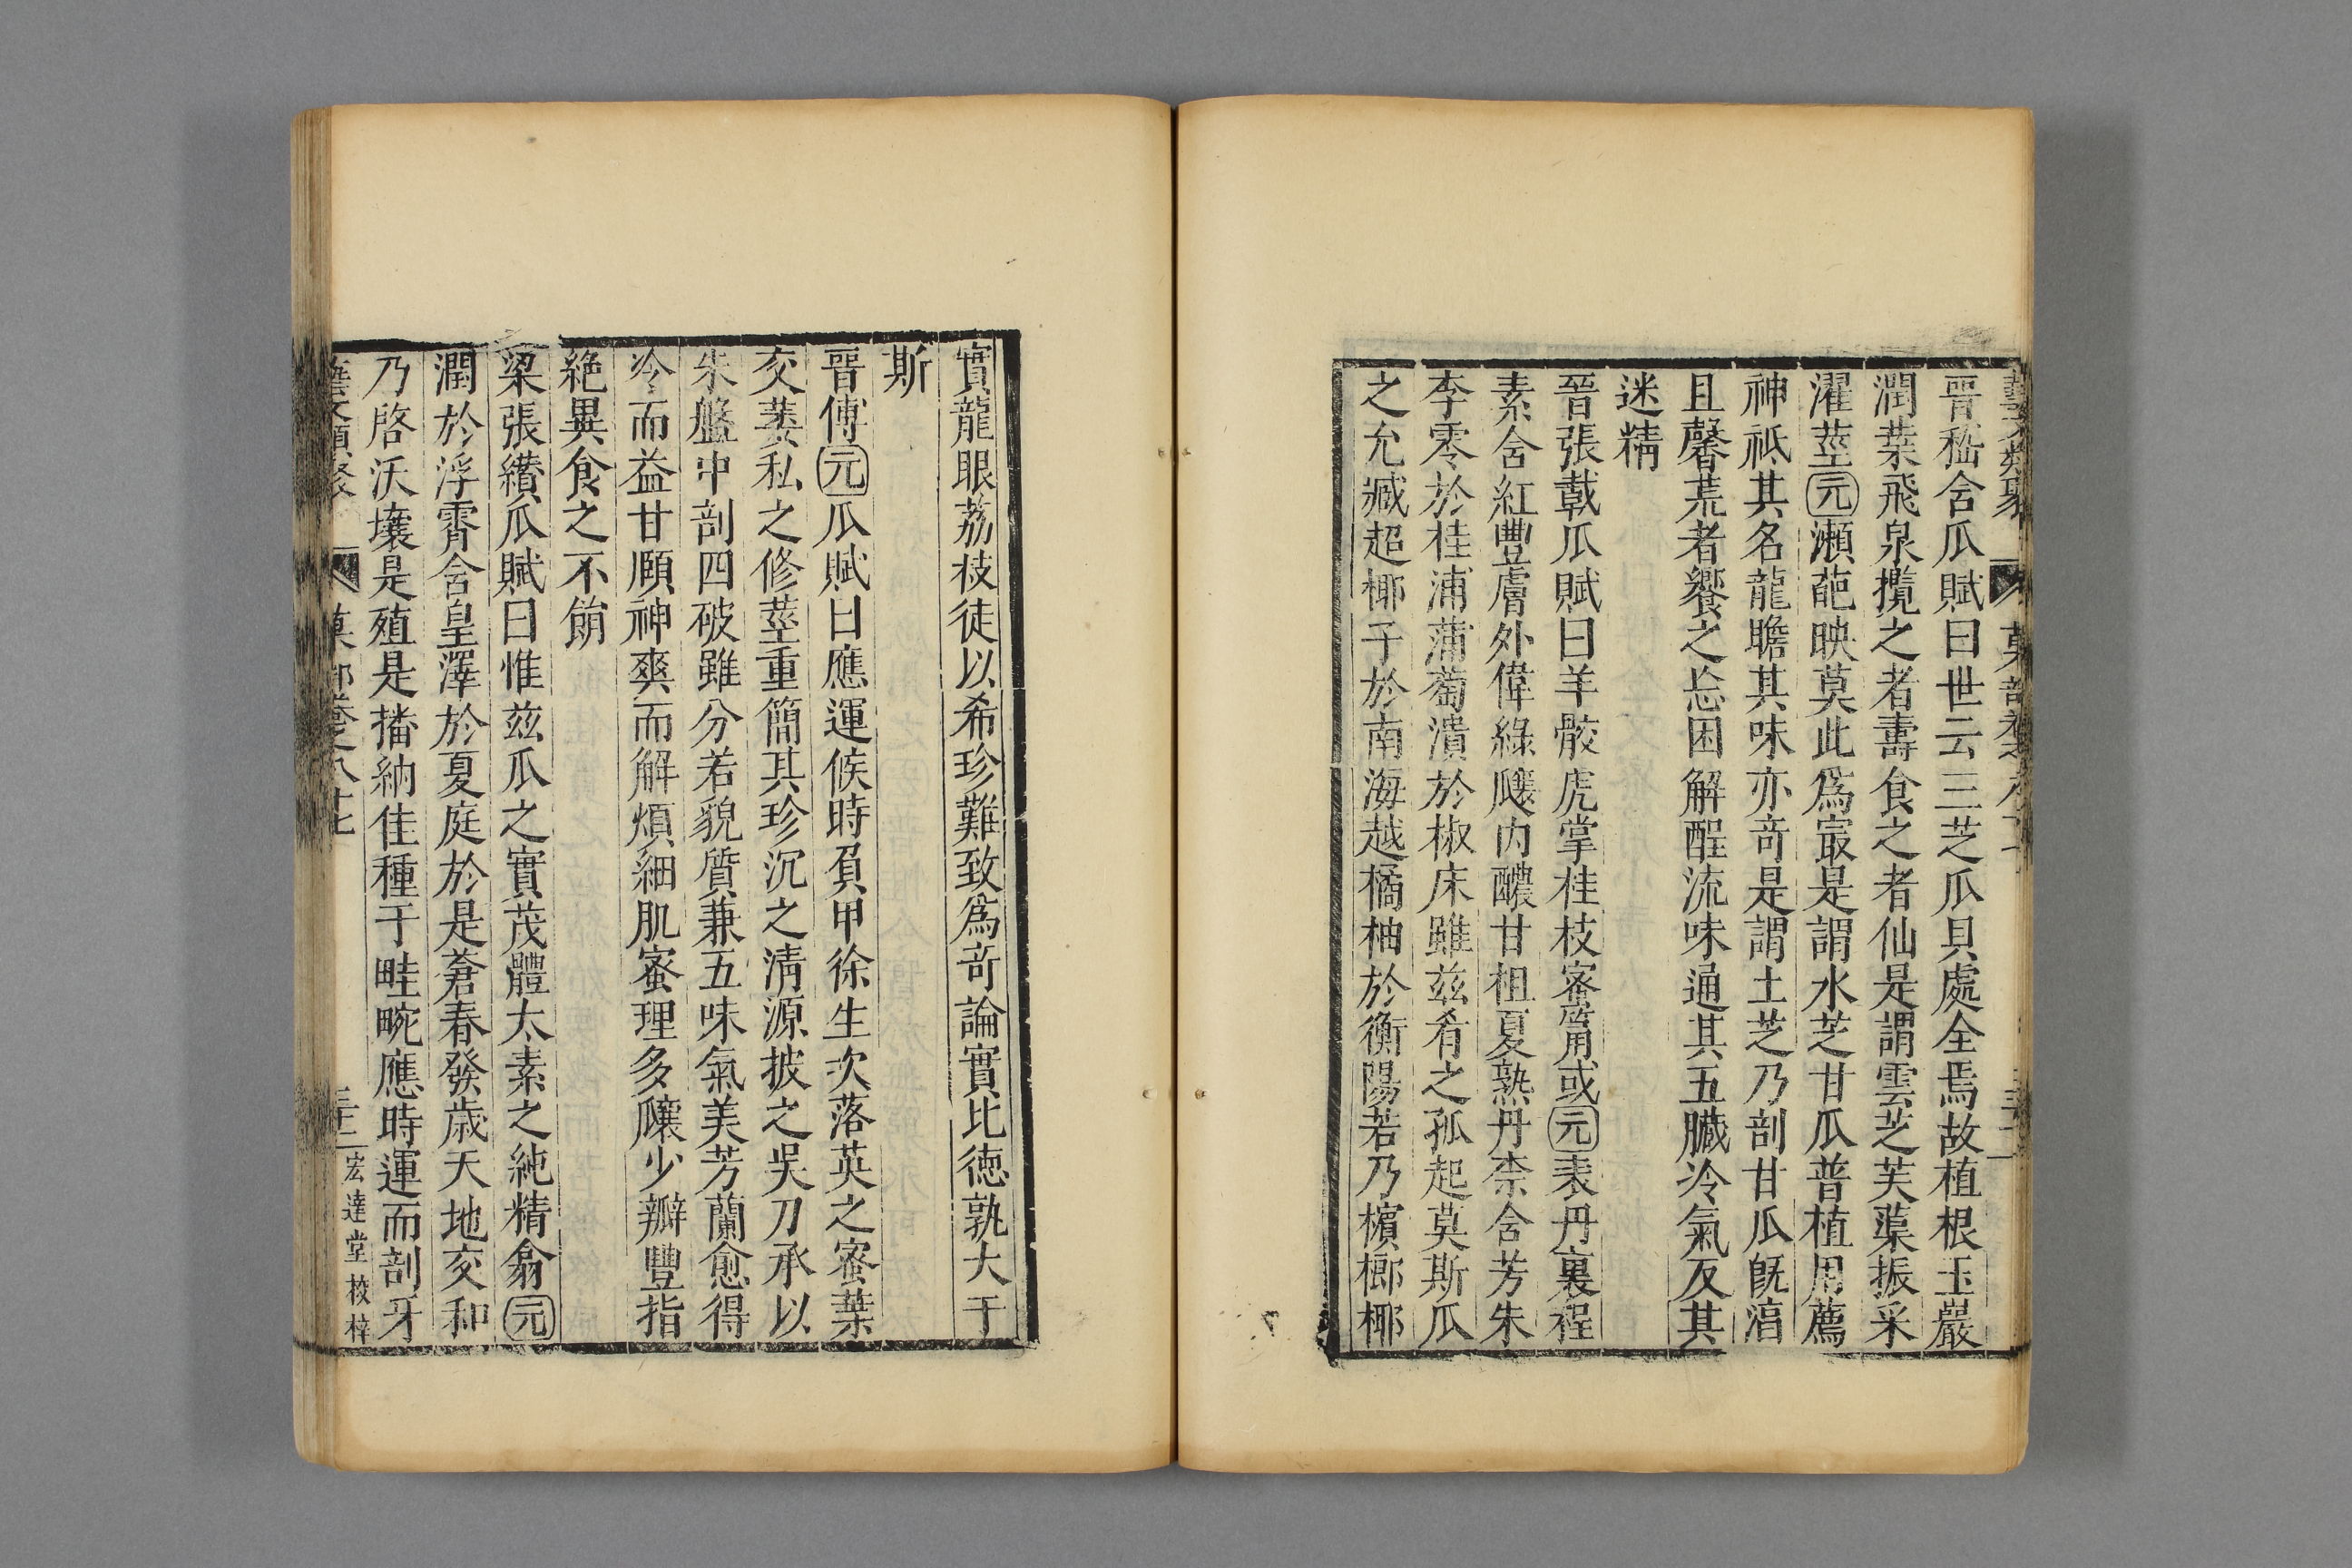 晉嵇含瓜賦曰世云三芝瓜具處全焉故植根玉巖
潤葉飛泉攬之者壽食之者仙是謂雲芝芙蕖振采
濯莖元瀨葩映莫此爲㝡是謂水芝甘瓜普植用薦
神祇其名龍瞻其味亦竒是謂土芝乃剖甘瓜旣淯
且馨荒者饗之忘困解酲流味通其五臟冷氣反其
迷精
晉張載瓜賦曰羊骹虎掌桂枝密筩或元表丹裏程
素含紅豐膚外偉綠瓤内醲甘柤夏熟丹柰含芳朱
李零於桂浦蒲萄潰於椒床雖兹肴之孤起莫斯瓜
之允臧超椰子於南海越橘柚於衡陽若乃檳榔椰
實龍眼荔枝徒以希珍難致爲竒論實比德孰大于
斯
晉傅元瓜賦曰應運候時負甲徐生次落英之蜜葉
交萋私之修莖重簡其珍沉之清源披之吳刀承以
朱盤中剖四破雖分若貌質兼五味氣美芳蘭愈得
冷而益甘願神爽而解煩細肌蜜理多瓤少瓣豐指
絶異食之不䬼
梁張纘瓜賦曰惟兹瓜之實茂體太素之純精翕元
潤於浮霄含皇澤於夏庭於是蒼春發歲天地交和
乃啓沃壤是殖是播納佳種于畦畹應時運而剖牙
藝文類聚 菓部卷之八十七 三十二 宏達堂校梓